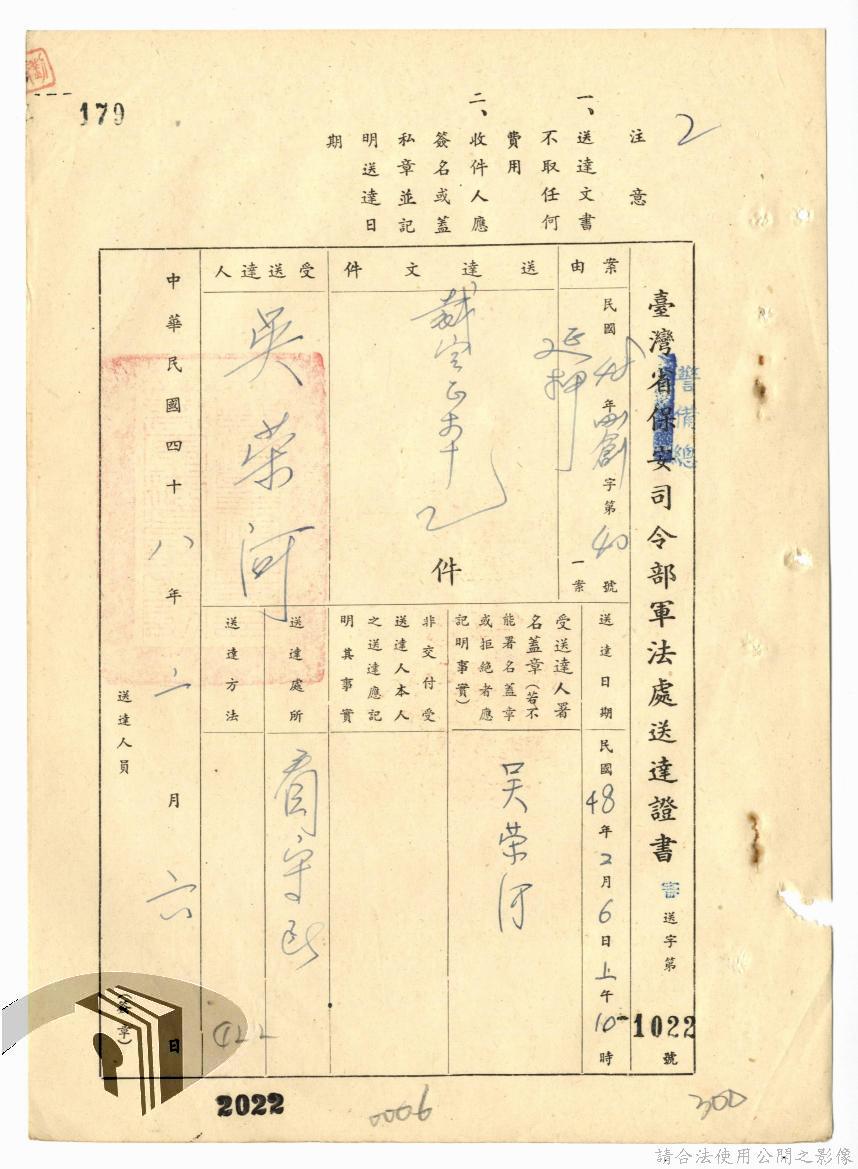 179
2
注意
一、送達文書
不取任何
費用
二、收件人應
簽名或蓋
私章並記
明送達日
期
臺灣省保安司令部軍法處送達證書
警備總
審送字第1022號
案由
民國48年創字第40號
一案
延押
送達文件
裁定正本
件
受送達人
吳榮河
送達日期
民國48年2月6日上午10時
受送達人署
名蓋章(若不
能署名蓋章
或拒絕者應
記明事實)
吴荣河
非交付受
送達人本人
之送達應記
明其事實
送達處所
看守所
送達方法
中華民國四十八年二月六日
送達人員
(簽章)
2022
0006
300
請合法使用公開之影像